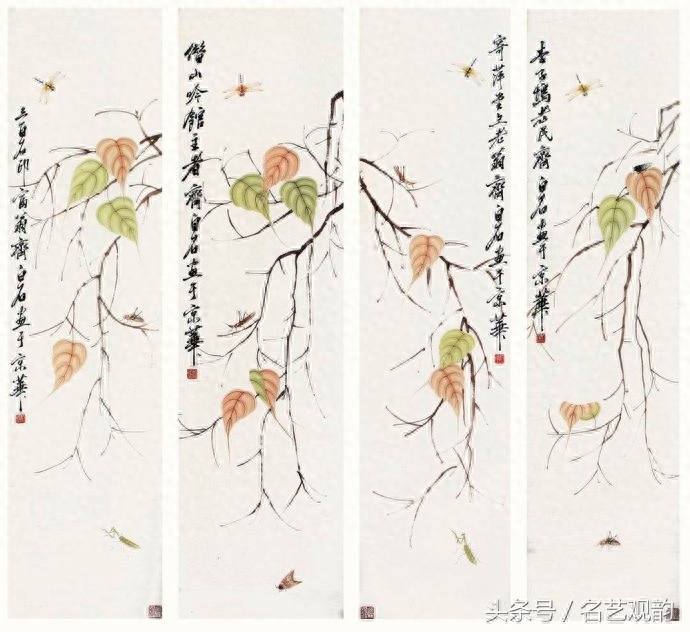 三百石印富翁齊白石畫于京華
借山吟館主者齊白石畫于京華
寄萍堂上老翁齊白石畫于京華
杏子塢老民齊白石畫于京華
头条号 / 名艺观韵